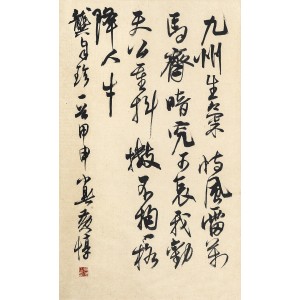 九州生氣恃風雷萬
馬齊喑究可哀我勸
天公重抖擻不拘一格
降人才
龔自珍一首甲申